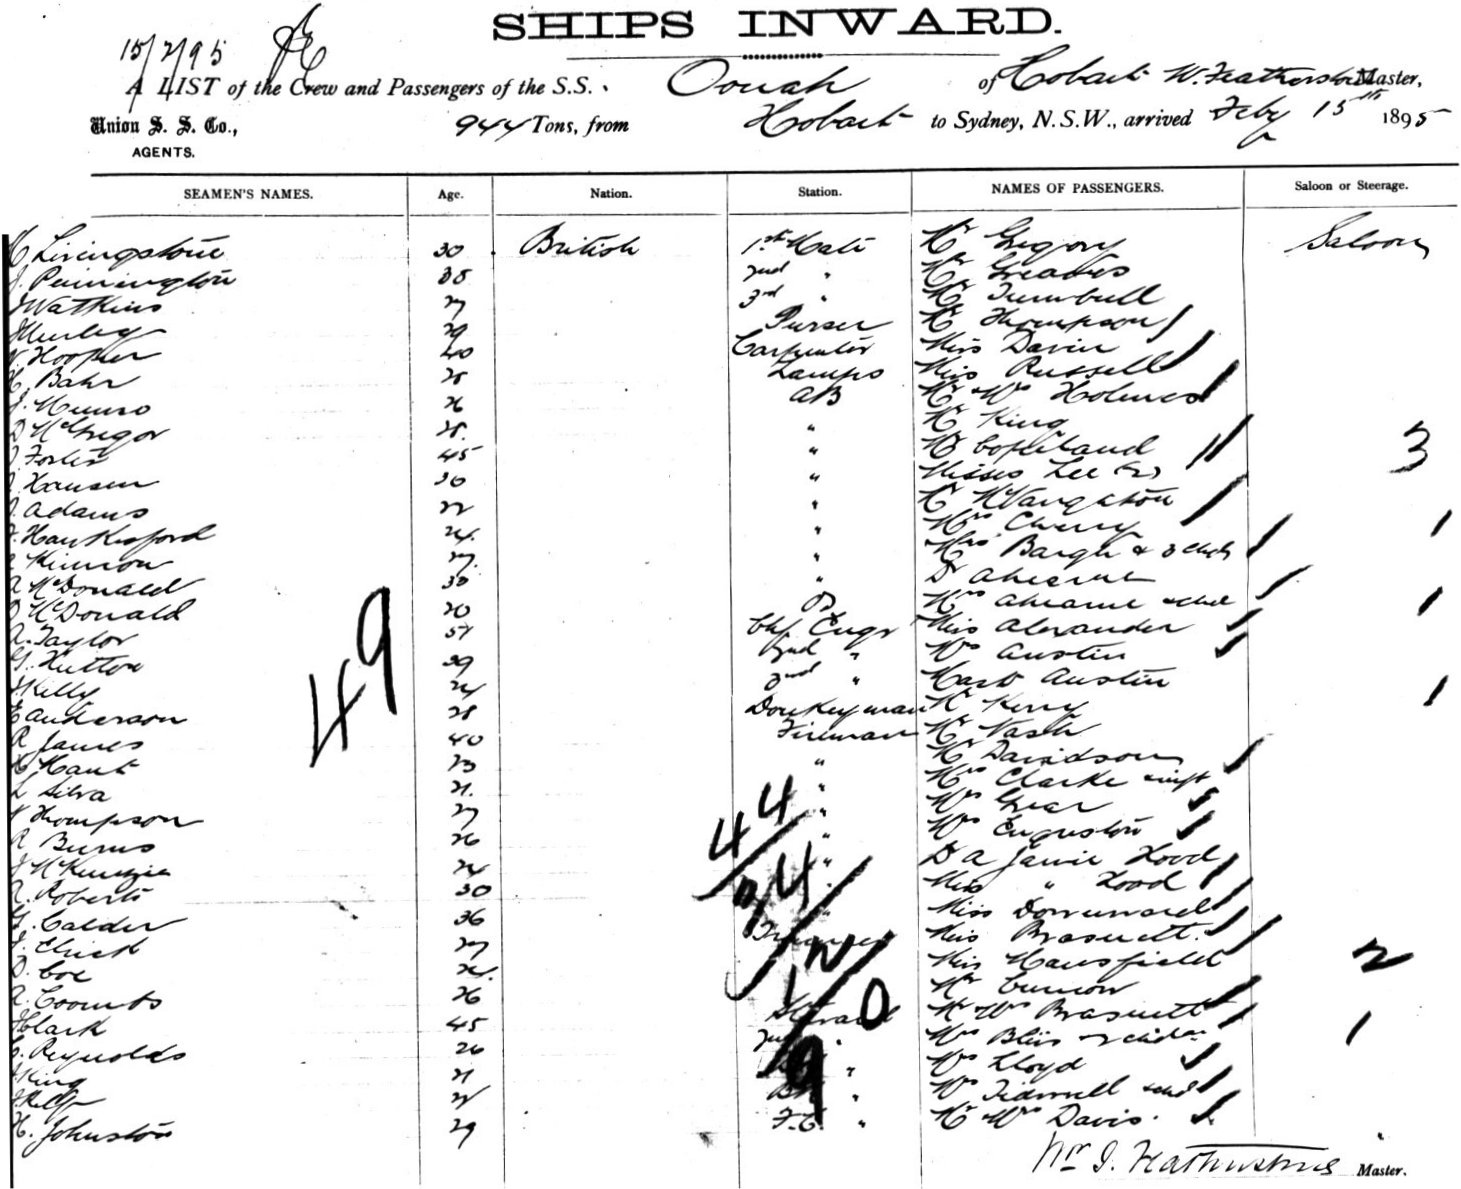 SHIPS INWARD.
15/2/95
A LIST of the Crew and Passengers of the S.S. Oonah of Hobart W. Featherstone Master,
Union S. S. Co., 944 Tons, from Hobart to Sydney, N.S.W., arrived Feby 15th 1895
AGENTS.
SEAMEN'S NAMES. Age. Nation. Station. NAMES OF PASSENGERS. Saloon or Steerage.
Livingstone 30 British 1st Mate Mr Gregory Saloon
J. Pennington 35 2nd " Mr Greaves
J Watkins 27 3rd " Mr Turnbull
29 Purser Mr Thompson
Hooper 40 Carpenter Miss Davis
H. Bahr 28 Lamps Miss Russell
J. Munro 26 AB Mr & Mrs Holmes
D McGregor 28. " Mr King
Foster 45 " Mr Copeland 3
Hansen 30 " Misses Lee (2)
Adams 22 " Mr McNaughton
Hawkesford 24. " Mrs Cherry 1
27. " Mrs & 3 chdn
A McDonald 30 " Dr Ahearne
D McDonald 20 OS Mrs Ahearne & chd 1
A. Taylor 51 Chf Engr Miss Alexander
G. Hutton 39 2nd " Mrs Austin
J Kelly 24 3rd " Mast Austin
E Anderson 28 Donkeyman Mr Kerry 1
R James 40 Fireman Mr Nash
23 " Mr Davidson
L Silva 21. " Mrs Clarke & inft
Thompson 27 " Mrs Grear
R Burns 26 " Mrs
J McKenzie 24 " Dr A Jamie Hood
A. Roberts 30 Miss " Hood
G. Calder 36 Miss Downward
27 Trimmer Miss Brasnett.
D. Coe 24. Miss Mansfield 2
A. Coombs 26 Mr Curnow
J Clark 45 Steward Mr & Mrs Brasnett
Reynolds 26 2nd " Mrs Bliss & 2 childn 1
J King 21 " Mrs Lloyd
22 " Mrs Tidmell & chd
H. Johnston 29 F.C. " Mr & Mrs Davis.
49
44
24
12
0
9
Wm J. Featherstone Master.